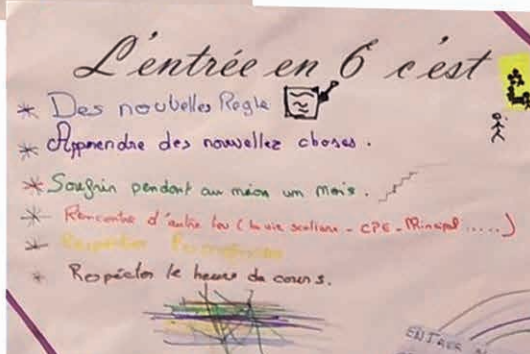 L'entrée en 6 c'est
* Des noubelles Regle
* Apprendre des nouvellez choses.
* Soufrir pendant au moion um mois.
* Rencontre d'autre (la vie scoliare - CPE - PRincipal.....)
* Respecter
* Respécter le heure de cours.
ENTRER